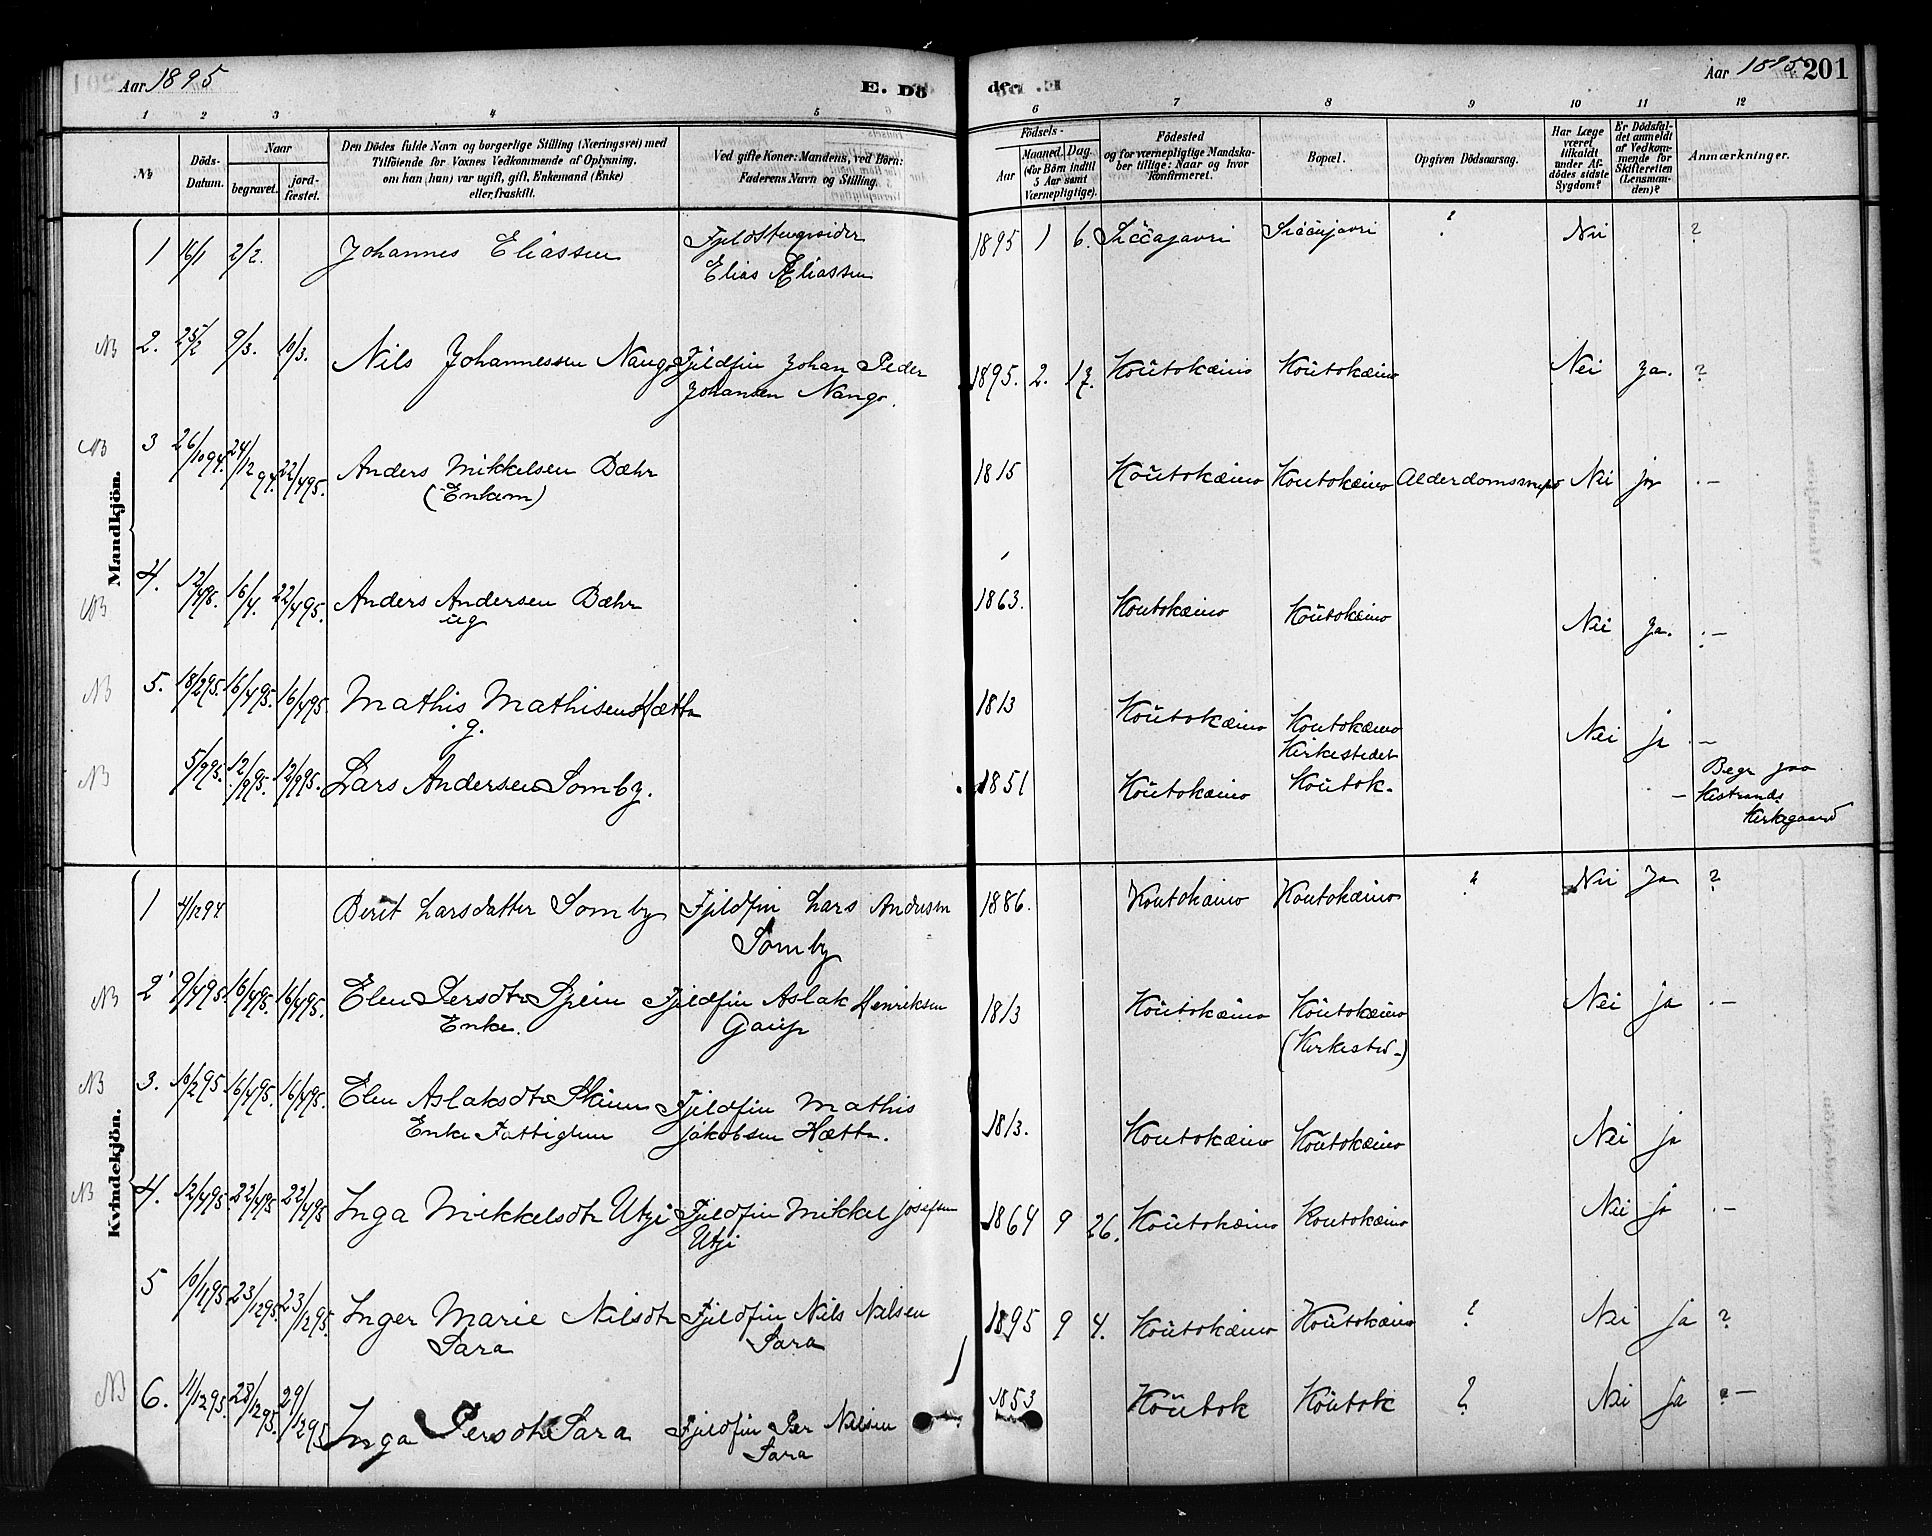 Aar 1895
E. Dö
de.
Aar 1895 201
1 2 3 4 5 6 7 8 9 10 11 12
No
Döds-Datum.
Naar
begravet.
jord-fæstet.
Den Dödes fulde Navn og borgerlige Stilling (Næringsvei) med
Tilföiende for Voxnes Vedkommende af Oplysning,
om han (hun) var ugift, gift, Enkemand (Enke)
eller fraskilt.
Ved gifte Koner: Mandens, ved Börn:
Faderens Navn og Stilling.
Födsels-
Aar
Maaned. Dag.
(for Börn indtil
5 Aar samt
Værnepligtige).
Födested
og for værnepligtige Mandska-
ber tillige: Naar og hvor
konfirmeret.
Bopæl.
Opgiven Dödsaarsag.
Har Læge
været
tilkaldt
under Af-
dödes sidste
Sygdom?
Er Dödsfal-
det anmeldt
af Vedkom-
mende for
Skifteretten
(Lensman-
den)?
Anmærkninger.
Mandkjön.
1 16/1 2/2. Johannes Eliassen Fjeldstueopsider 1895 1 6. Siččajavri Siččajavri ? Nei ?
Elias Eliassen
NB 2. 25/2 9/3. 10/3. Nils Johannessen Nango Fjeldfin Johan Peder 1895. 2. 17. Koutokæino Koutokæino Nei Ja. ?
Johansen Nango.
NB 3 26/10 94. 24/12 94. 22/4 95. Anders Mikkelsen Bæhr 1815 Koutokæino Koutokæino Nei ja .–
(Enkem)
NB 4. 12/4 95. 16/4. 22/4 95. Anders Andersen Bæhr 1863. Koutokæino Koutokæino Nei Ja. .–
ug
NB 5. 18/2 95. 16/4 95. 16/4 95. Mathis Mathisen Hætta 1813 Koutokæino Koutokæino Nei ja .–
g. Kirkestedet
NB 5/9 95. 12/9 95. 12/9 95. Lars Andersen Somby. 1851 Koutokæino Koutok. – Begr paa
Kistrands
Kirkegaard
Kvindekjön.
1 4/12 94 Berit Larsdatter Somby Fjeldfin Lars Andersen 1886. Koutokæino Koutokæino ? Nei Ja ?
Somby
NB 2 9/4 95. 16/4 95. 16/4 95. Elen Persdtr Spein Fjeldfin Aslak Henriksen 1813 Koutokæino Koutokæino Nei ja .–
Enke. Gaup (Kirkested–)
NB 3. 10/2 95 16/4 95. 16/4 95. Elen Aslaksdtr Fjeldfin Mathis 1813. Koutokæino Koutokæino Nei ja
Enke Fattiglem Jakobsen Hætta.
NB 4. 12/4 95 22/4 95 22/4 95 Inga Mikkelsdtr Utsi Fjeldfin Mikkel Josefsen 1864 9 26. Koutokæino Koutokæino Nei ja .–
Utsi
5 10/11 95 23/12 95. 23/12 95. Inger Marie Nilsdtr Fjeldfin Nils Nilsen 1895 9 4. Koutokæino Koutokæino ? Nei ja ?
Sara Sara
NB 6. 11/12 95. 28/12 95. 29/12 95 Inga Persdtr Sara Fjeldfin Per Nilsen 1853 Koutok Koutok ? Nei Ja .–
Sara